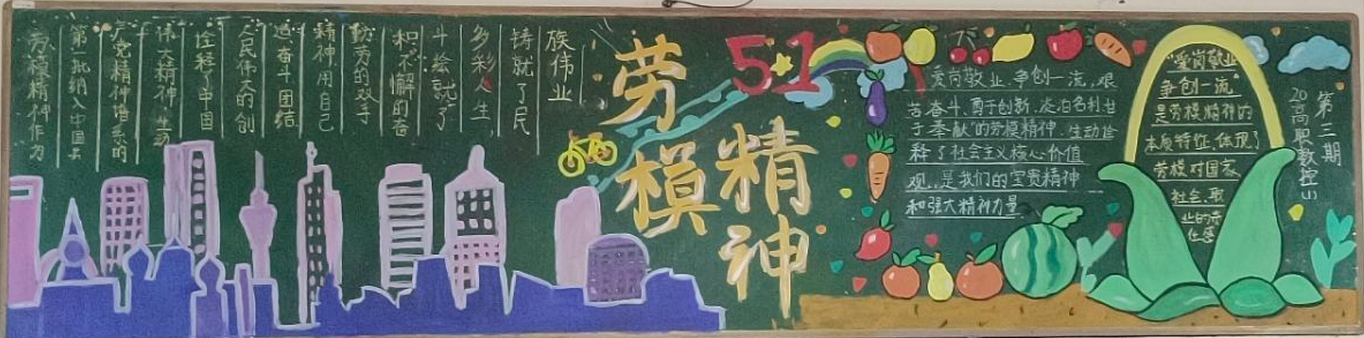 劳模精神作为
第一批纳入中国共
产党精神谱系的
伟大精神,生动
诠释了中国
人民伟大的创
造奋斗团结
精神,用自己
勤劳的双手
和不懈的奋
斗绘就了
多彩人生,
铸就了民
族伟业
劳模
精神
5·1
爱岗敬业、争创一流,艰
苦奋斗、勇于创新、淡泊名利、甘
于奉献”的劳模精神,生动诠
释了社会主义核心价值
观,是我们的宝贵精神
和强大精神力量
“爱岗敬业
争创一流”
是劳模精神的
本质特征,体现了
劳模对国家、
社会、职
业的责
任感
第三期
20高职数控(1)